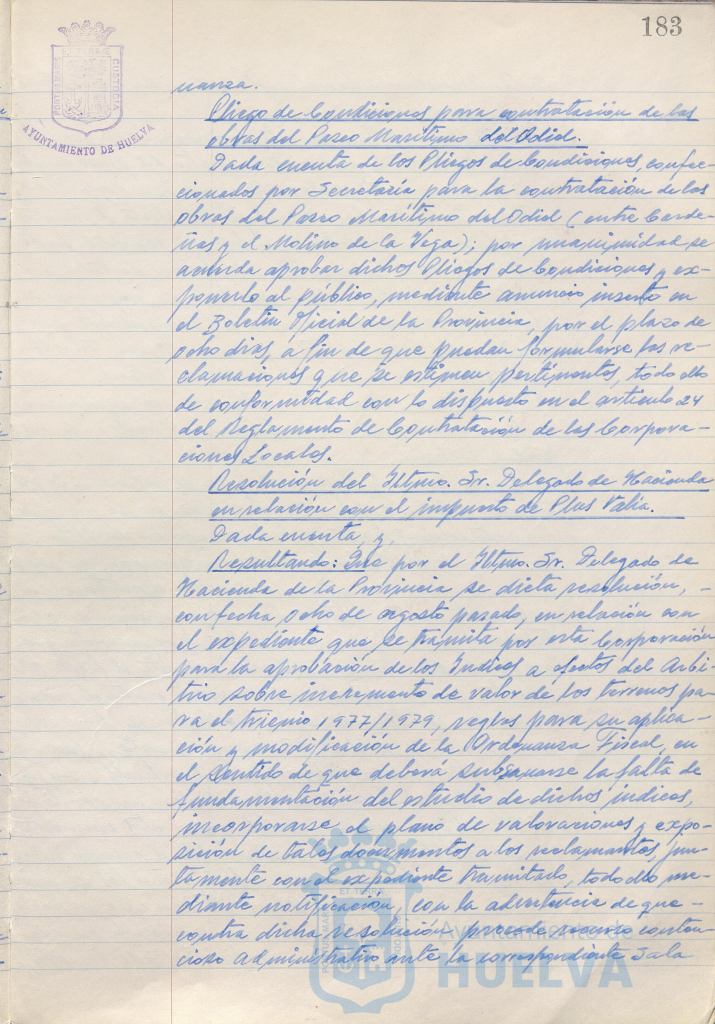 183
PORTUS MARIS ET TERRAE CUSTODIA
AYUNTAMIENTO DE HUELVA
nanza.
Pliego de Condiciones para contratación de las
obras del Paseo Marítimo del Odiel.
Dada cuenta de los Pliegos de Condiciones, confec-
cionados por Secretaría para la contratación de las
obras del Paseo Marítimo del Odiel (entre Carde-
ñas y el Molino de la Vega); por unanimidad se
acuerda aprobar dichos Pliegos de Condiciones y ex-
ponerlo al público, mediante anuncio inserto en
el Boletín Oficial de la Provincia, por el plazo de
ocho días, a fin de que puedan formularse las re-
clamaciones que se estimen pertinentes, todo ello
de conformidad con lo dispuesto en el artículo 24
del Reglamento de Contratación de las Corpora-
ciones Locales.
Resolución del Iltmo. Sr. Delegado de Hacienda
en relación con el impuesto de Plus Valía.
Dada cuenta, y,
Resultando: Que por el Iltmo. Sr. Delegado de
Hacienda de la Provincia se dicta resolución, -
con fecha ocho de agosto pasado, en relación con
el expediente que se tramita por esta Corporación
para la aprobación de los Indices a efectos del Arbi-
trio sobre incremento de valor de los terrenos pa-
ra el trienio 1977/1979, reglas para su aplica-
ción y modificación de la Ordenanza Fiscal, en
el sentido de que deberá subsanarse la falta de
fundamentación del estudio de dichos indices,
incorporarse el plano de valoraciones y expo-
sición de tales documentos a los reclamantes, jun-
tamente con el expediente tramitado, todo ello me-
diante notificación, con la advertencia de que -
contra dicha resolución procede recurso conten-
cioso administrativo ante la correspondiente Sala
Ayuntamiento de
HUELVA